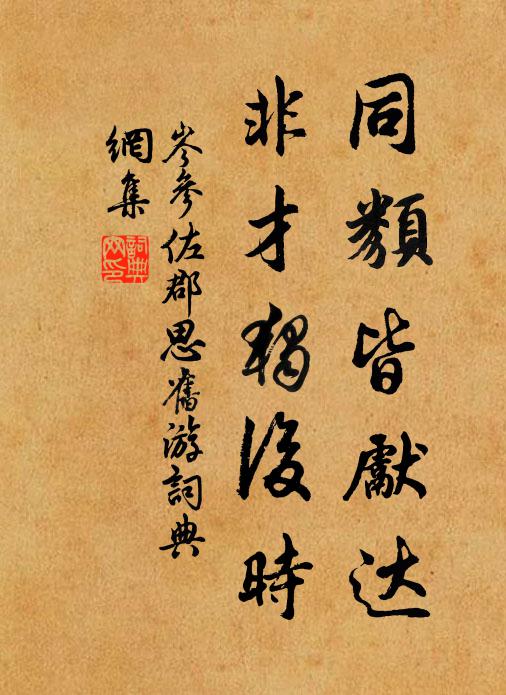 同類皆獻达
非才獨後時
岑參佐郡思舊游詞典
網集
詞典
网印